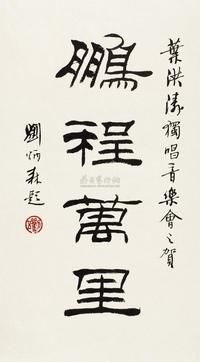 葉洪濤獨唱音樂會之賀
鵬程萬里
劉炳森題